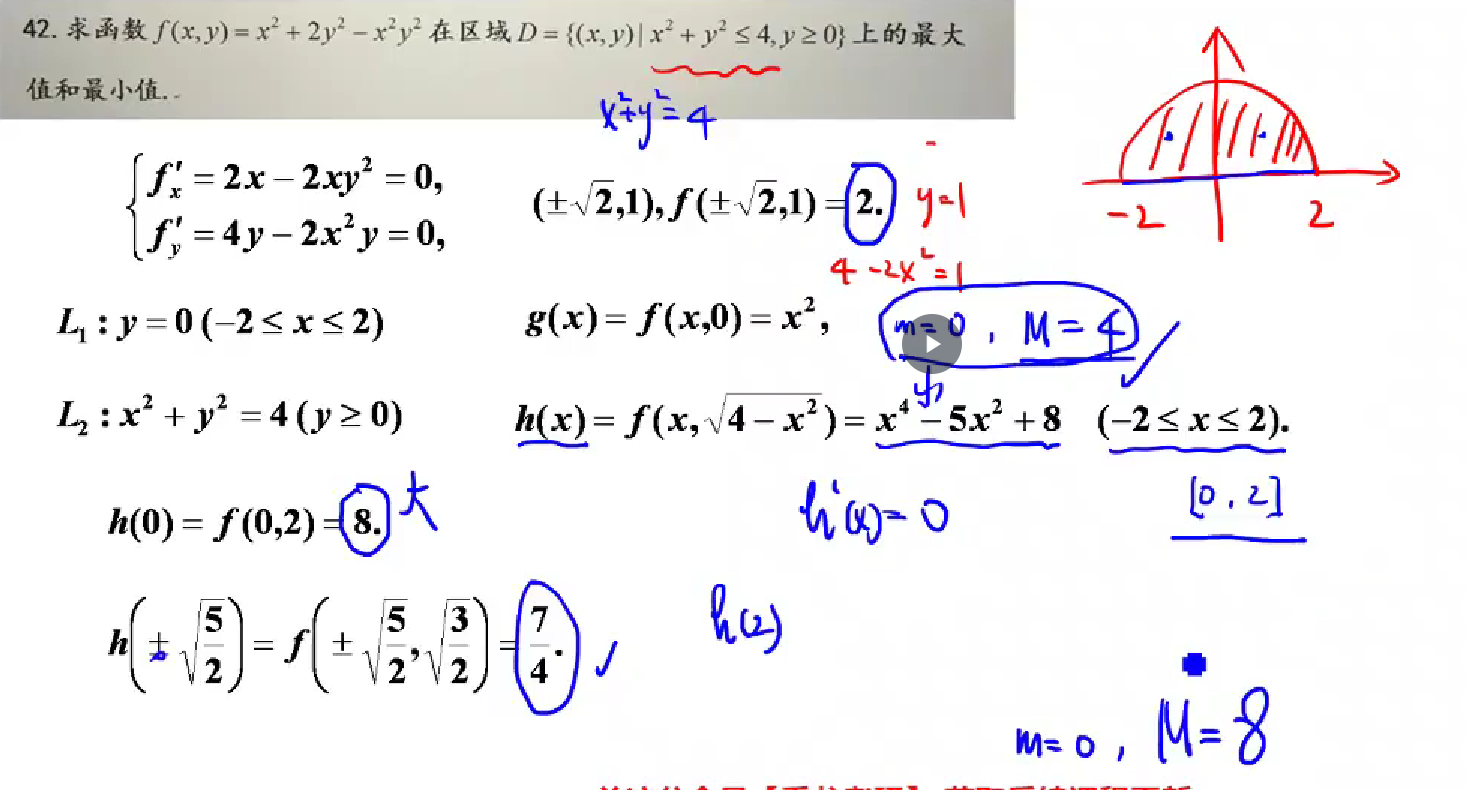 42. 求函数 f(x,y)=x²+2y²−x²y² 在区域 D={(x,y)|x²+y²≤4,y≥0} 上的最大
值和最小值.
x²+y²=4
{ f′ₓ=2x−2xy²=0,
f′ᵧ=4y−2x²y=0,
(±√2,1), f(±√2,1)=2.
y=1
4-2x²=1
-2
2
L₁: y=0 (−2≤x≤2)
g(x)=f(x,0)=x²,
m=0, M=4
小
L₂: x²+y²=4 (y≥0)
h(x)=f(x,√(4−x²))=x⁴−5x²+8 (−2≤x≤2).
[0, 2]
h(0)=f(0,2)=8.
大
h′(x)=0
h(±√(5/2))=f(±√(5/2),√(3/2))=7/4.
h(2)
m=0, M=8